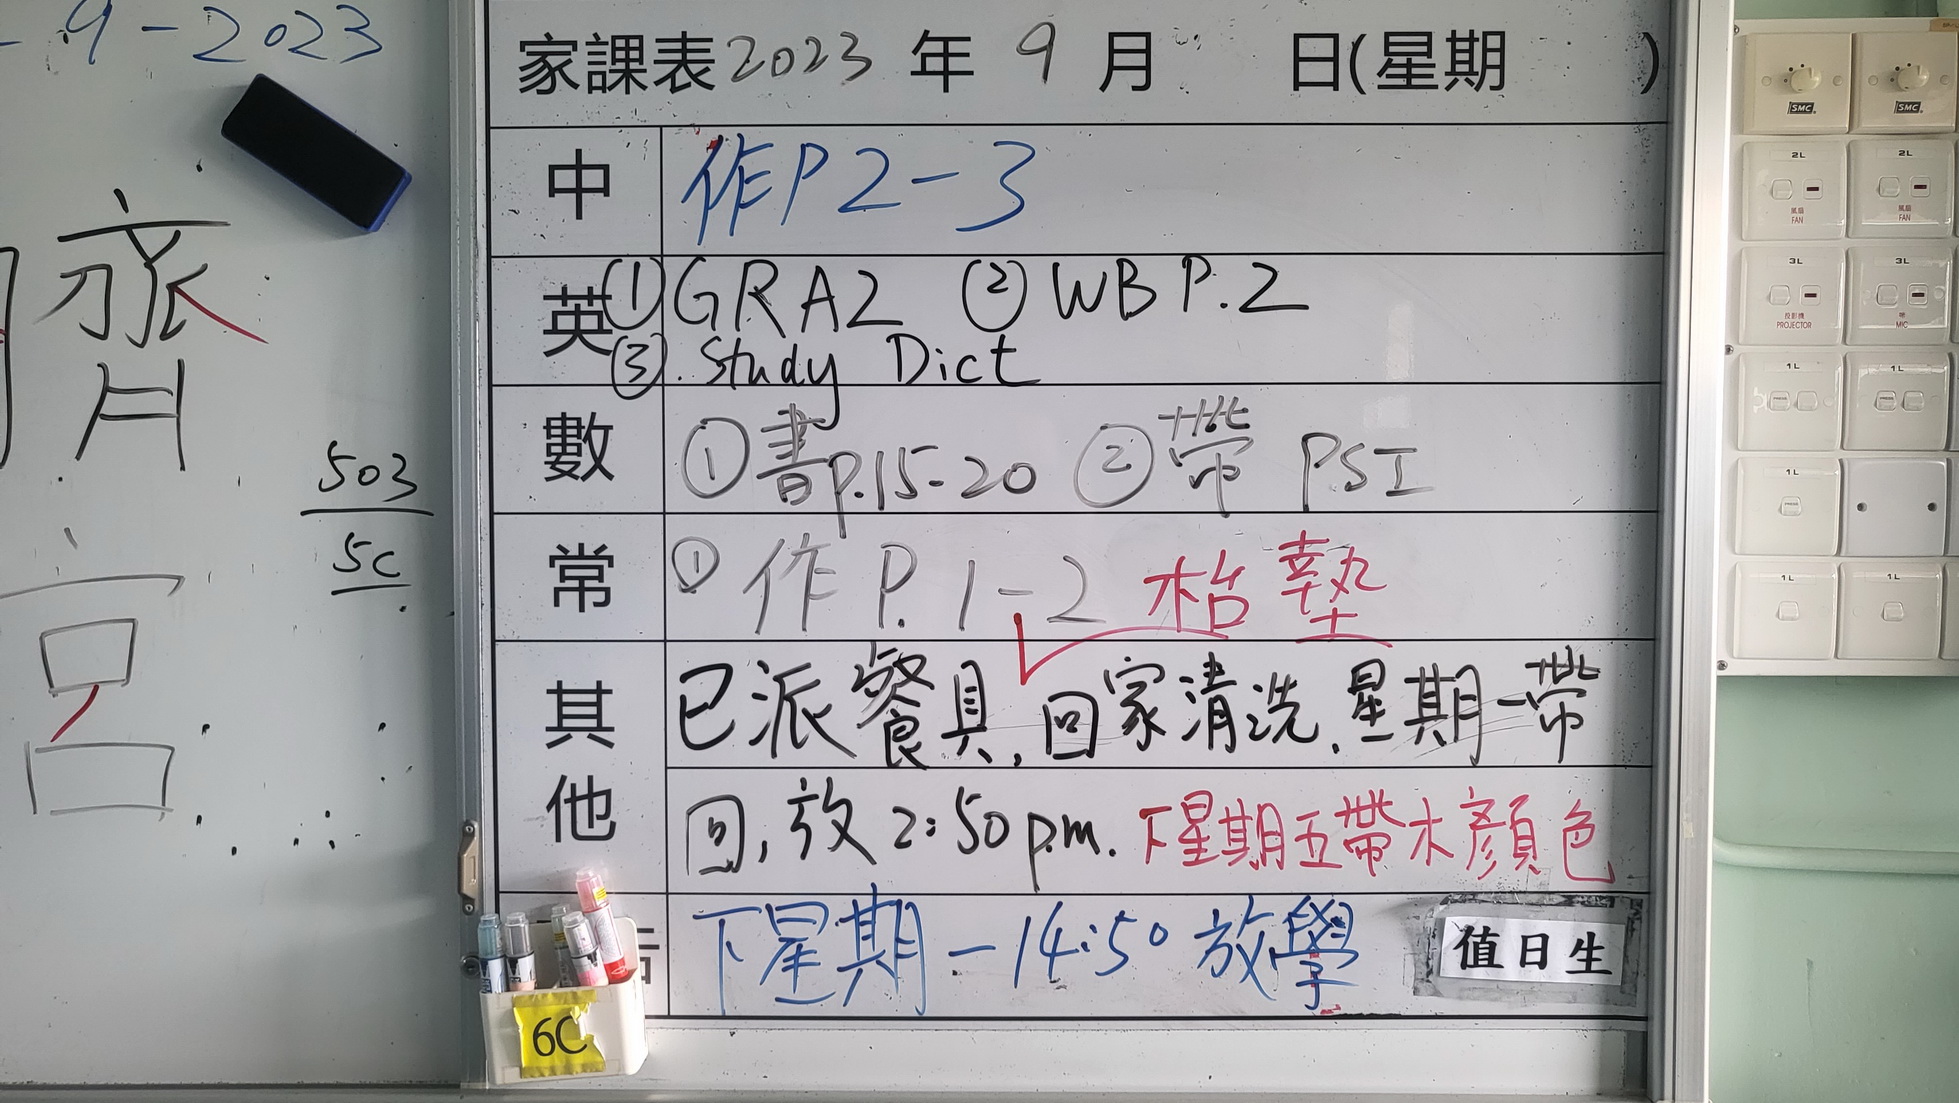 -9-2023
齊
宮
503
5C
家課表2023年9月 日(星期 )
中 作P2-3
英 ①GRA2 ②WB P.2
③.Study Dict
數 ①書p.15-20 ②帶 PSI
常 ①作P.1-2 枱墊
其他 已派餐具,回家清洗.星期一帶
回,放2:50p.m.下星期五帶水顏色
下星期一14:50放學
值日生
6C
SMC
SMC
2L
風扇
FAN
2L
風扇
FAN
3L
投影機
PROJECTOR
3L
咪
MIC
1L
1L
1L
1L
1L